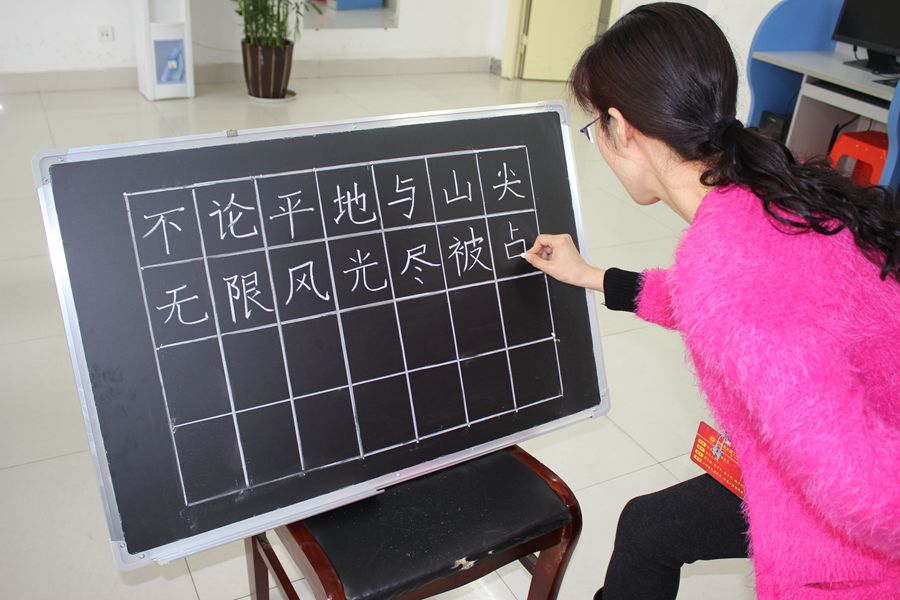 不论平地与山尖
无限风光尽被占